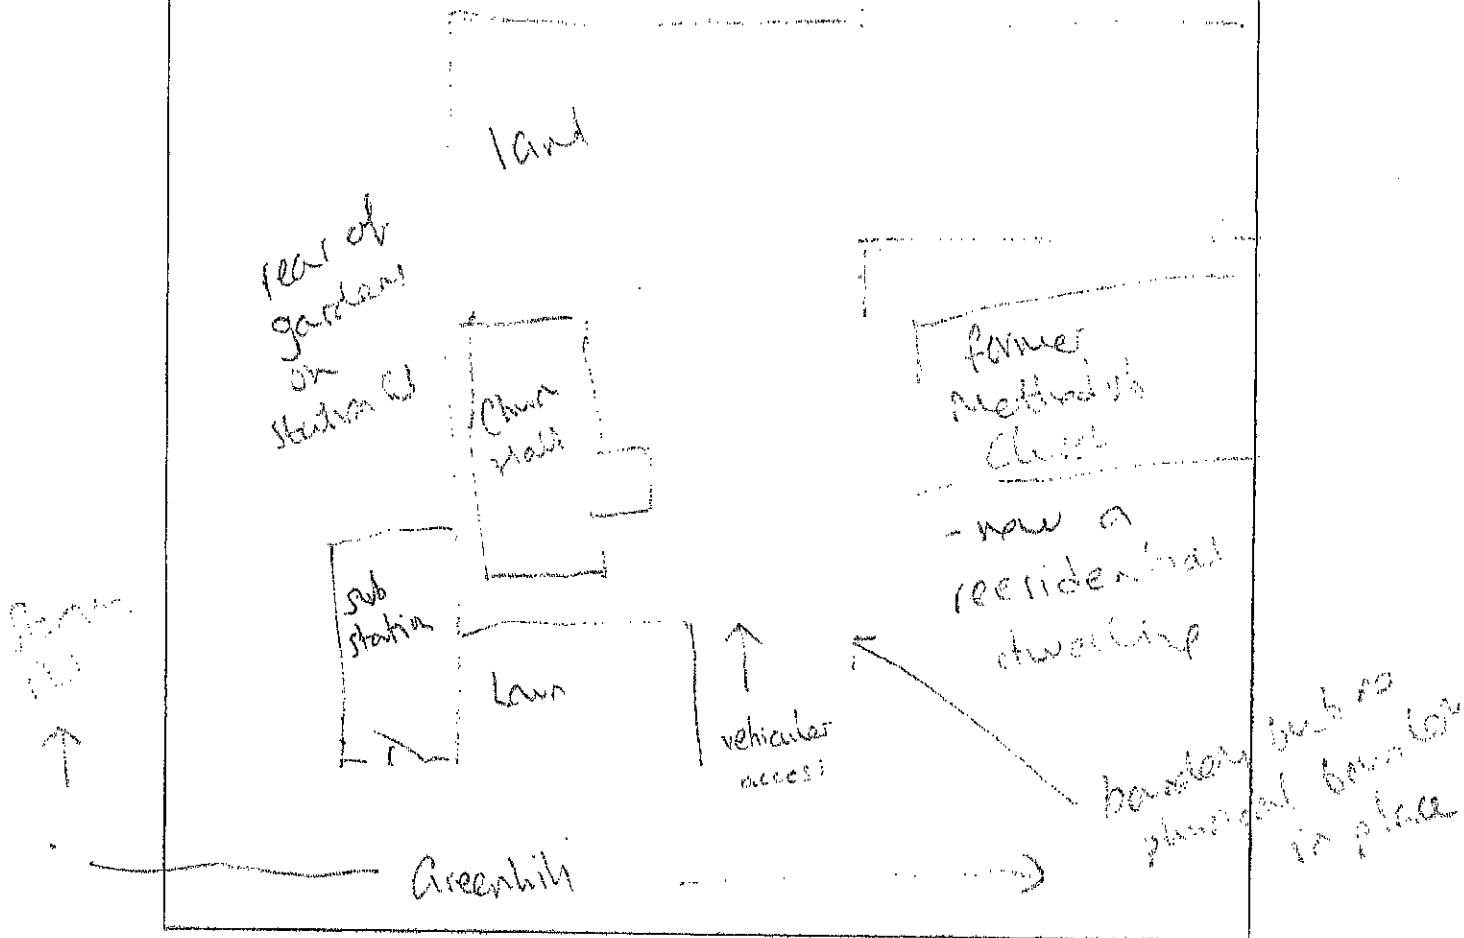 land
rear of
gardens
on
station rd
Church
Hall
former
Methodist
Church
- now a
residential
dwelling
sub
station
Lawn
vehicular
access
boundary but no
physical boundary
in place
Greenhill